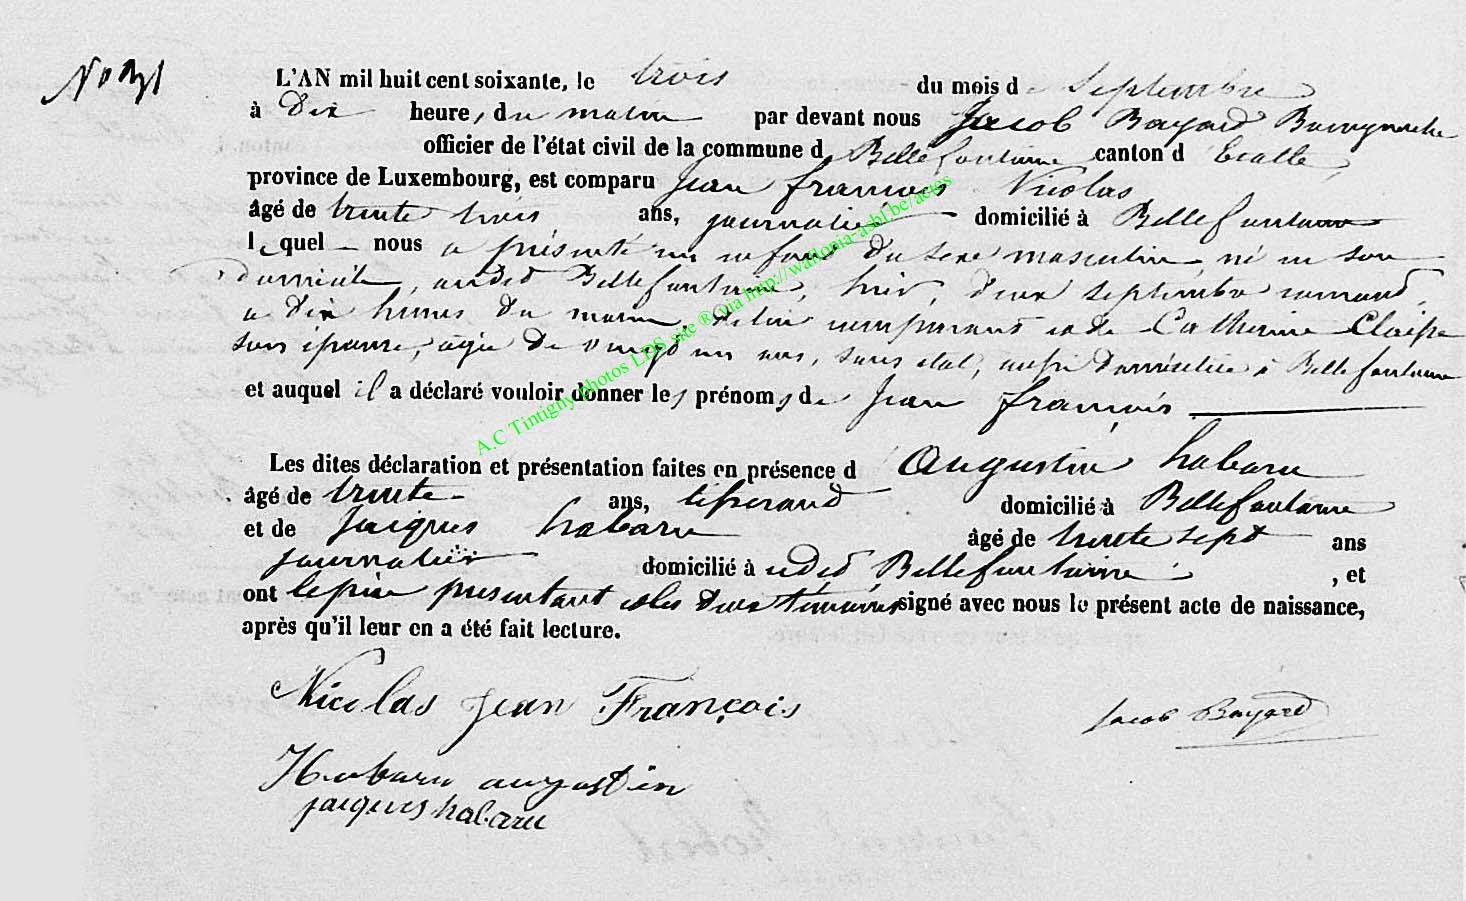 L'AN mil huit cent soixante, le trois du mois d Septembre
à Dix heure, du matin par devant nous Jacob Bayard Bourgmestre
officier de l'état civil de la commune d Bellefontaine canton d' Etalle,
province de Luxembourg, est comparu Jean françois Nicolas
âgé de trente trois ans, journalier domicilié à Bellefontaine
lequel nous a présenté un enfant du sexe masculin, né en son
domicile, audit Bellefontaine, hier, deux septembre courant,
a dix heures du matin, de lui comparant et de Catherine
son épouse, agée de vingt un ans, sans état, aussi domiciliée à Bellefontaine
et auquel il a déclaré vouloir donner les prénoms de Jean françois
Les dites déclaration et présentation faites en présence d Augustin habaru
âgé de trente ans, tisserand domicilié à Bellefontaine
et de Jacques habaru âgé de trente sept ans
journalier domicilié à udit Bellefontaine , et
ont le père présentant et les deux témoins signé avec nous le présent acte de naissance,
après qu'il leur en a été fait lecture.
Nicolas Jean François
Jacob Bayard
Habaru augustin
jacques habaru
A.C Tintigny photos LDS site ® via http://wallonia-asbl.be/actes